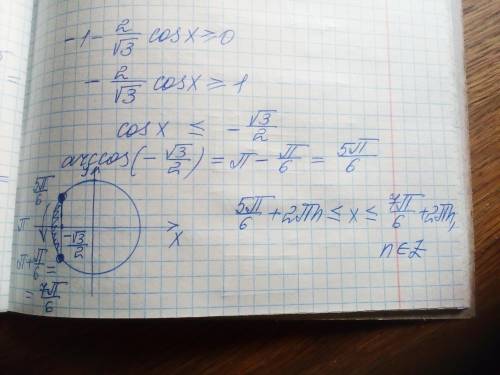 -1 - 2/√3 cosx ≥ 0
- 2/√3 cosx ≥ 1
cosx ≤ - √3/2
arccos(-√3/2) = π - π/6 = 5π/6
y
5π/6
π
-√3/2
x
π+π/6 =
= 7π/6
5π/6 + 2πn ≤ x ≤ 7π/6 + 2πn,
n∈Z